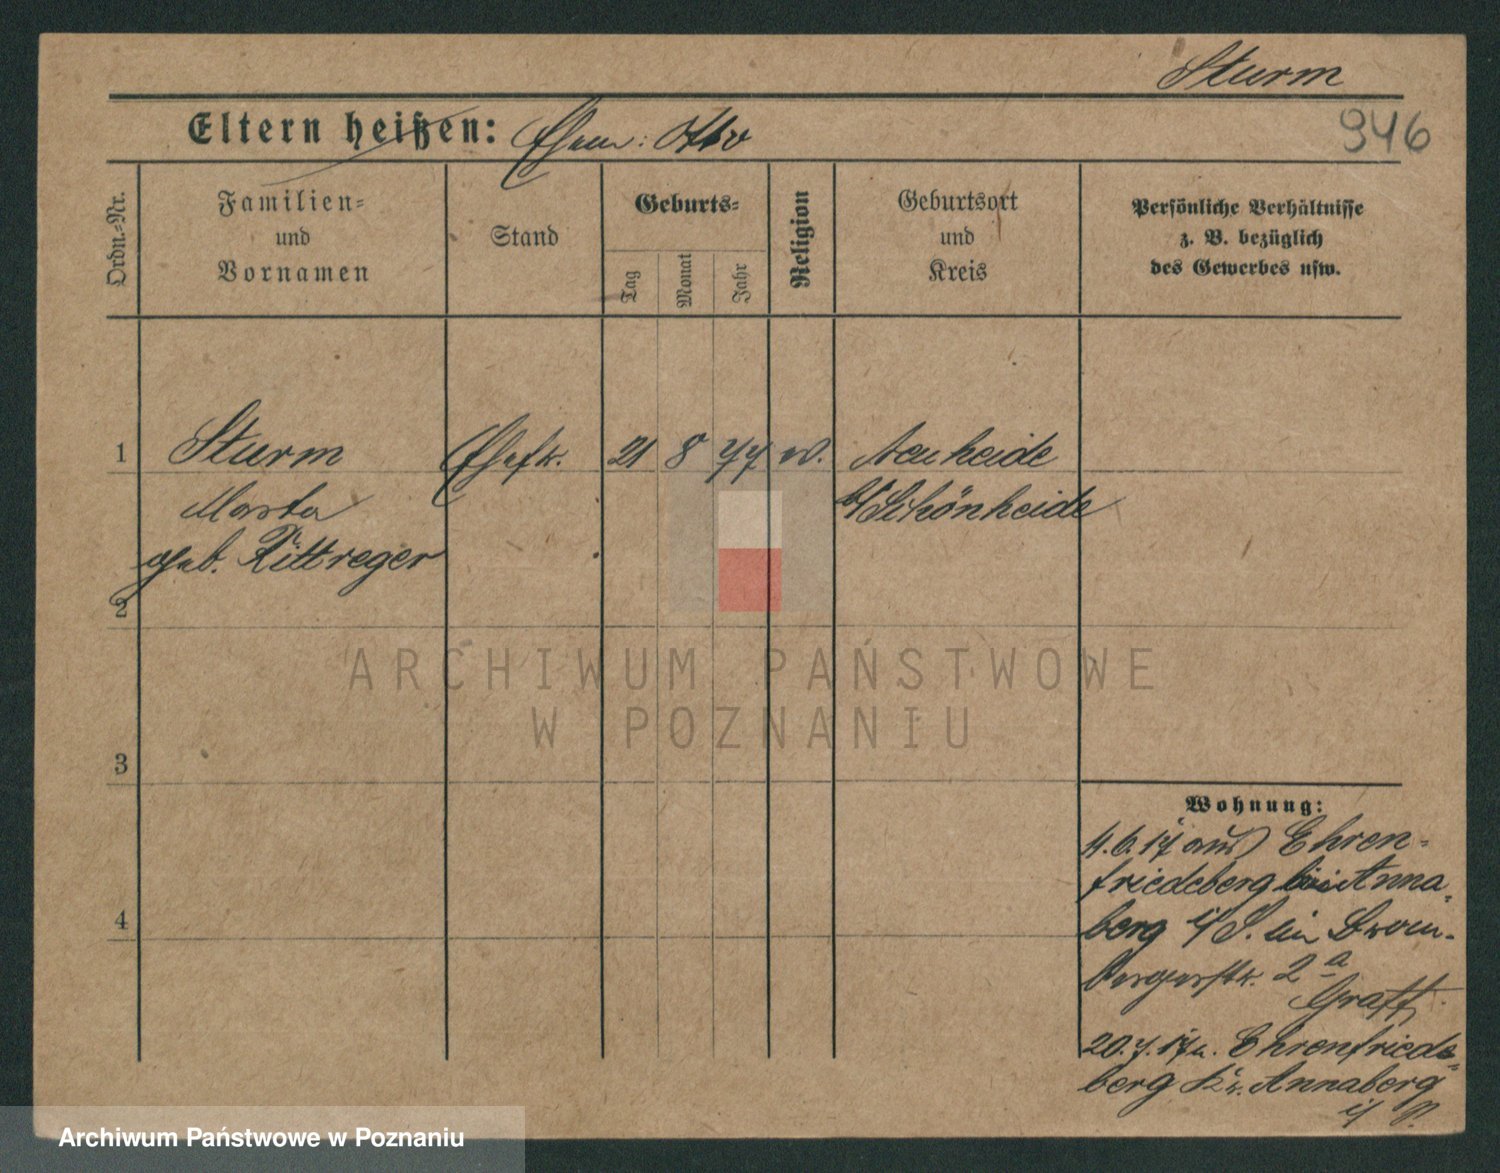 Sturm
Eltern heißen: Ehem: Otto
946
Ordn.-Nr.
Familien-
und
Vornamen
Stand
Geburts-
Tag
Monat
Jahr
Religion
Geburtsort
und
Kreis
Persönliche Verhältnisse
z. B. bezüglich
des Gewerbes usw.
1
Sturm
Ehefr.
21
8
77
Neuheide
Marta
b/Schönheide
geb. Rittreger
2
3
4
Wohnung:
4.6.17 aus Ehren-
friedeberg bei Anna-
berg i/S. in Brom-
bergerstr. 2a
Graff.
20.7.17 n. Ehrenfriede-
berg Kr. Annaberg
i/
ARCHIWUM PAŃSTWOWE
W POZNANIU
Archiwum Państwowe w Poznaniu